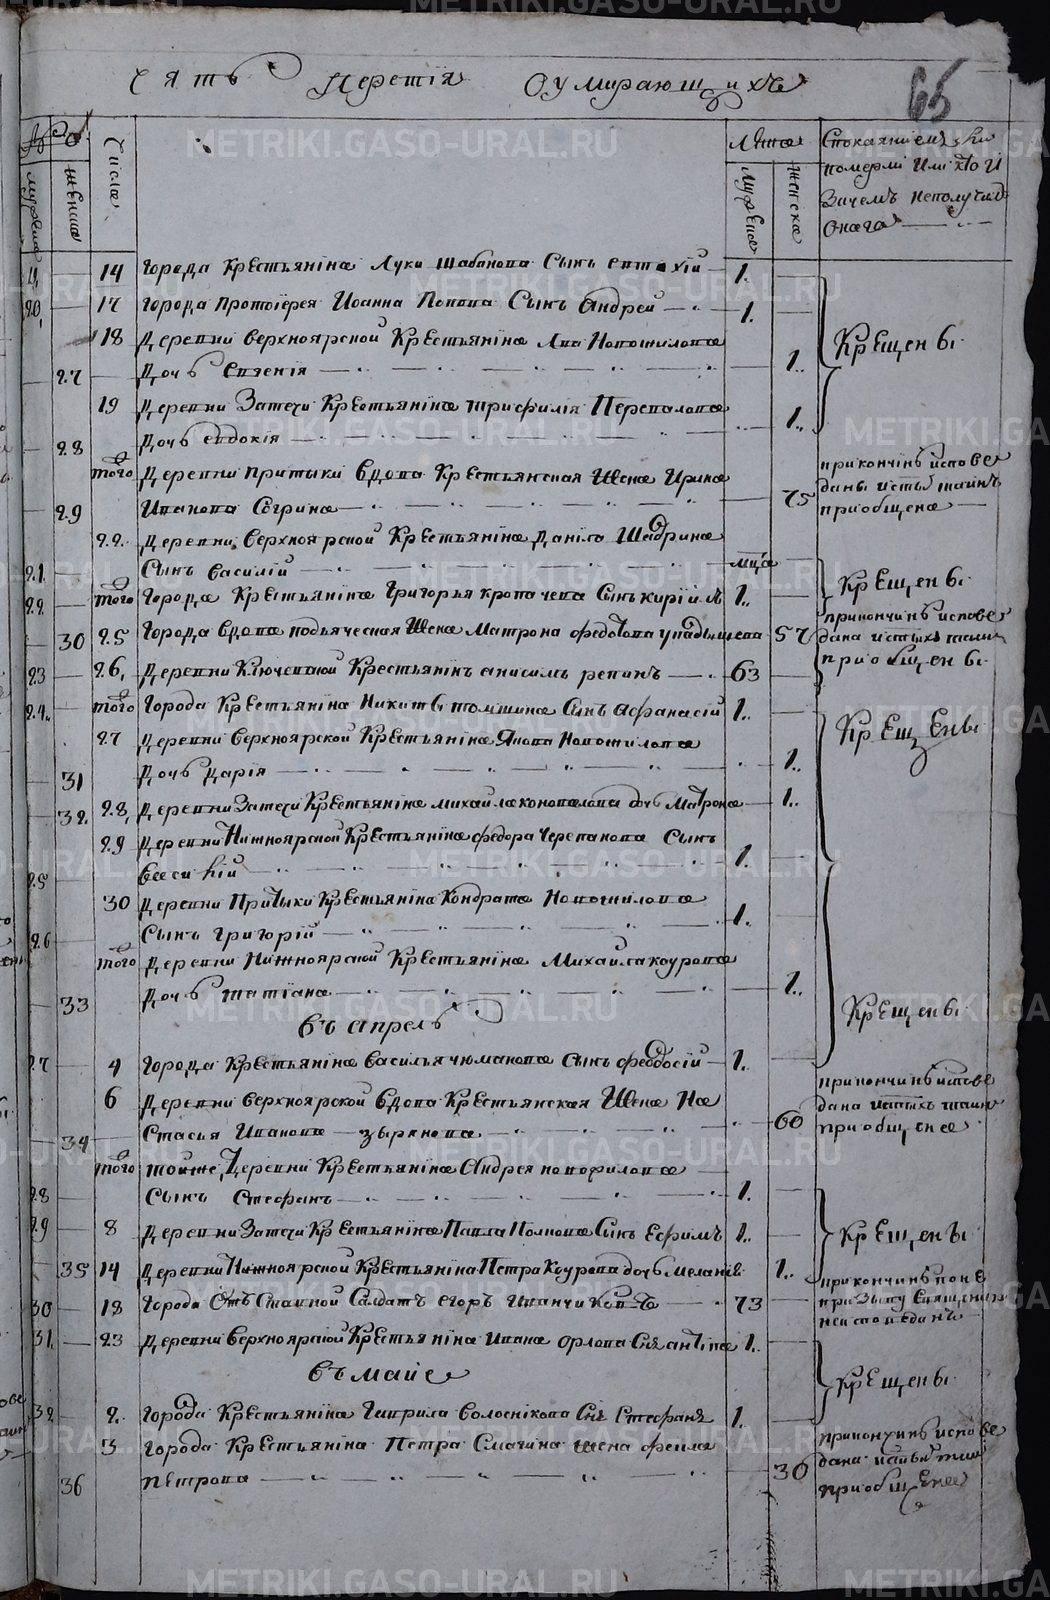 Часть третїя О умирающихъ
65
мужска
женска
Числа
Лета
мужеска
женска
С покаянием ли
померли или кто и
зачемъ неполучилъ
онаго
14 города Крестьянина Луки Шабанова Сынъ Евтихїй 1.
20, 17 города протоїерея Иоанна Попова Сынъ Андрей 1.
18 деревни верхноярской Крестьянина Льва Новошилова
27 дочь Евгенїя 1.
Крещены
19 деревни Затечи Крестьянина трифилїя Перевалова 1.
28 дочь евдокїя
того деревни притыки вдова Крестьянская Жена Ирина
29 Иванова Согрина 75
при кончинѣ испове
даны и стых таинъ
приобщена
22. деревни Верхноярской Крестьянина данїла Шадрина
21. Сынъ василїй мца
22. того города Крестьянина Григорья кропачева Сынъ кирїилъ 1.
Крещены
30 25 города вдова подьяческая Жена Матрона федотова увадышева 57
при кончинѣ испове
дана и стыхъ таин
приобщены
23 26, деревни Ключевской Крестьянїнъ анисимъ репинъ 63
24. того города Крестьянина Никиты томшина Сынъ афанасїй 1.
27 деревни верхноярской Крестьянина Якова Новошилова
31 дочь дарїя 1.
Крещены
32. 28, деревни Затечи Крестьянїна михайла коновалова дочь Матрона 1.
29 деревни Нижноярской Крестьянїна федора Черепанова Сынъ
25 Евсевїй 1.
30 деревни Притыки Крестьянїна Кондрата Новошилова
26 Сынъ григорїй 1.
того деревни Нижноярской Крестьянїна Михайла коурова
33 дочь татїана 1.
Крещены
въ апрелѣ
27 4 города Крестьянїна василья чюмакова сынъ феодосїй 1.
6 деревни верхноярской вдова Крестьянская Жена На
34 стасья Иванова зырянова 60
при кончинѣ испове
дана и стыхъ таин
приобщена
того той же деревни Крестьянїна Андрея новошилова
28 Сынъ Стефанъ 1.
29 8 деревни Затечи Крестьянїна Павла Попова Сынъ Ефимъ 1.
Крещены
35 14 деревни Нижноярской Крестьянїна Петра Коурова дочь Меланїя 1.
30 18 города Отъставной Салдатъ егоръ Иванчиковъ 73
при кончинѣ по не
призыву священника
неисповеданъ
31. 23 деревни Верхноярской Крестьянїна Ивана Орлова Снъ антїпа 1.
въ майе
Крещены
32 2. города Крестьянїна Гаврила Волоснїкова Снъ Стефанъ 1.
3 города Крестьянїна Петра Смагина жена фекла
36 петрова 30
при кончинѣ испове
дана и стых таин
приобщенна
METRIKI.GASO-URAL.RU